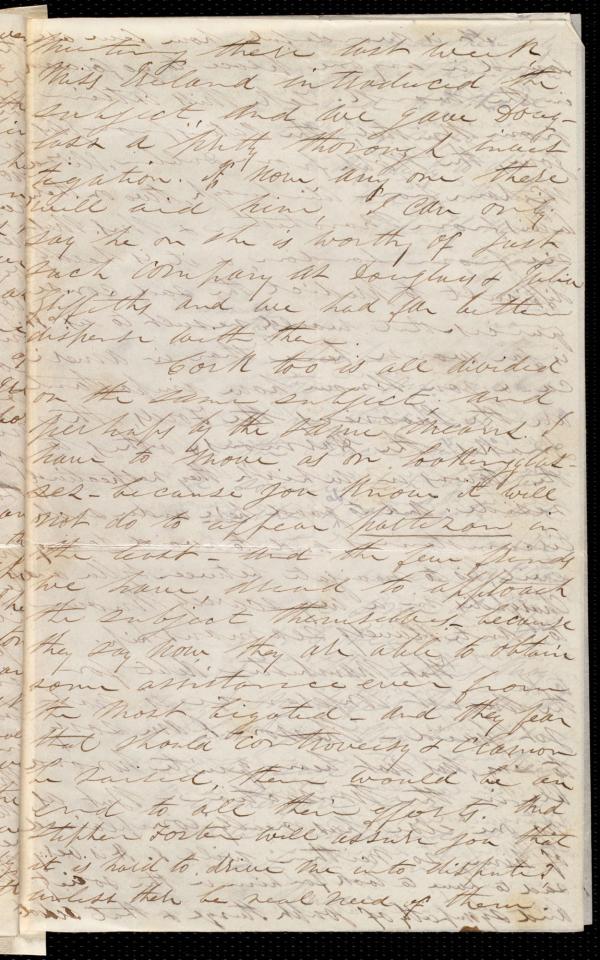 meeting there last week,
Miss Ireland introduced the
subject, and we gave Doug-
lass a pretty thorough inves
tigation. If now, any one there
will aid him, I can only
say he or she is worthy of just
such company as Douglass & Julia
Griffiths and we had far better
dispense with them.
Cork too is all divided
on the same subject. and
perhaps by the same means. I
have to "move as on looking glas-
ses - because you know it will
not do to appear partizan in
the least - and the few friends
we have, dread to approach
the subject themselves - because
they say now they are able to obtain
some assistance even from
the most bigoted - and they fear
that should controversy & clamor
be raised, there would be an
end to all their efforts. And
Stephen Foster will assure you that
it is hard to drive me into disputes
unless there be real need of them.